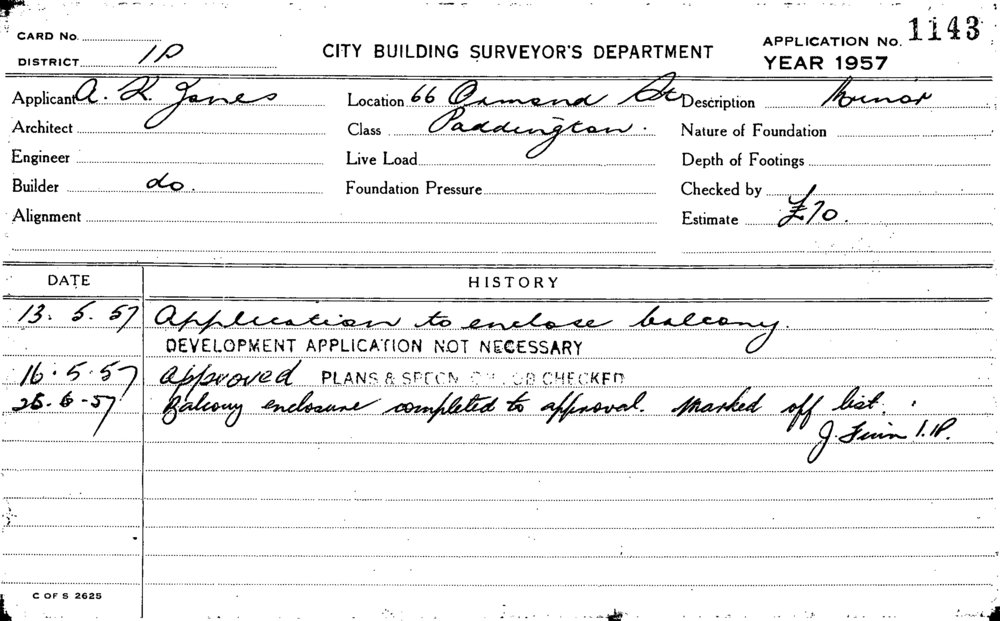 CARD No.
DISTRICT 1P
CITY BUILDING SURVEYOR'S DEPARTMENT
APPLICATION No. 1143
YEAR 1957
Applicant A. R. Jones
Location 66 Ormond St
Description Minor
Architect
Class Paddington.
Nature of Foundation
Engineer
Live Load
Depth of Footings
Builder do.
Foundation Pressure
Checked by
Alignment
Estimate £70.
DATE HISTORY
13. 5. 57 Application to enclose balcony.
DEVELOPMENT APPLICATION NOT NECESSARY
16. 5. 57 Approved PLANS & SPECN CHECKED
25-6-57 Balcony enclosure completed to approval. Marked off list.
J. 1.P.
C OF S 2625